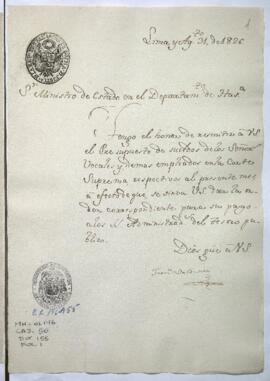 1
Lima, y Ag.to 31, de 1826
S.r Ministro de Estado en el Departam.to de Haz.a
Tengo el honor de remitir à VS.
el Presupuesto de sueldos de los Señores
Vocales, y demas empleados en la Corte
Suprema respectivo al presente mes
à efecto de que se sirva VS. dar la or-
den correspondiente para su pago
a los SS. Administrad.s del Tesoro pu-
blico.
Dios gue à VS.
MH-OL146
CAJ. 50
DOC 155
FOL. 1